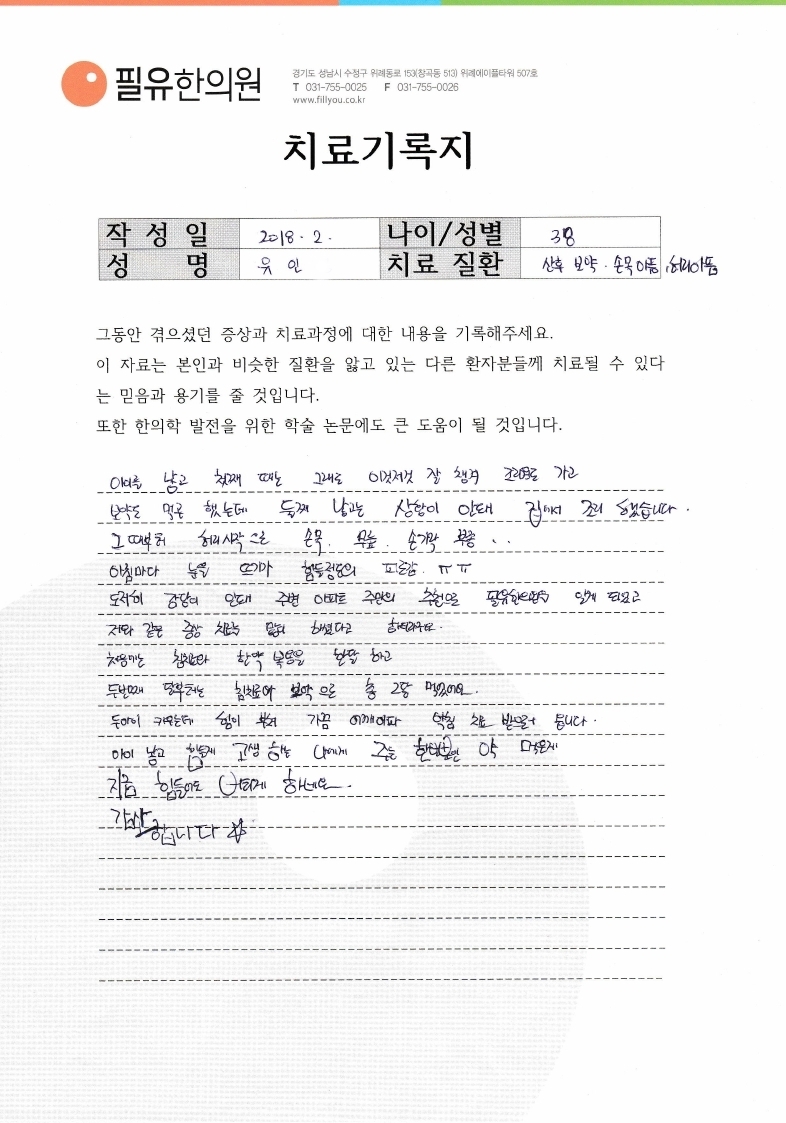 필유한의원
경기도 성남시 수정구 위례동로 153(창곡동 513) 위례에이플타워 507호
T 031-755-0025 F 031-755-0026
www.fillyou.co.kr
치료기록지
작 성 일 2018. 2. 나이/성별
성 명 유 인 치료 질환 산후 보약. 손목아픔, 허리아픔
그동안 겪으셨던 증상과 치료과정에 대한 내용을 기록해주세요.
이 자료는 본인과 비슷한 질환을 앓고 있는 다른 환자분들께 치료될 수 있다
는 믿음과 용기를 줄 것입니다.
또한 한의학 발전을 위한 학술 논문에도 큰 도움이 될 것입니다.
아이를 낳고 첫째 때는 그래도 이것저것 잘 챙겨 조리원도 가고
보약도 먹곤 했는데 둘째 낳고는 상황이 안돼 집에서 조리 했습니다.
그 때부터 허리시작으로 손목. 무릎. 손가락 통증..
아침마다 눈을 뜨기가 힘들정도의 피로감. ㅠㅠ
도저히 감당이 안돼 주변 아파트 주민의 추천으로 필유한의원을 알게 되었고
저와 같은 증상 치료를 많이 하셨다고 하더라구요.
처음에는 침치료와 한약 복용을 한달 하고
두번째 달부터는 침치료와 보약으로 총 2달 먹었어요.
두아이 키우는데 힘이 부쳐 가끔 어깨아파 약침 치료 받으러 옵니다.
아이 낳고 힘들게 고생하는 나에게 주는 약 먹은게
지금 힘들어도 버티게 하네요.
감사합니다